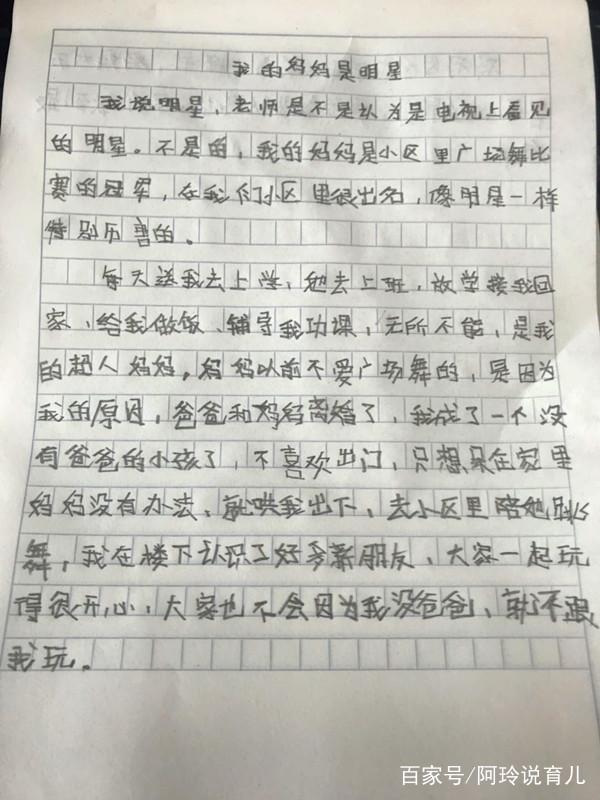 我的妈妈是明星
我说明星，老师是不是认为是电视上看见
的明星。不是的，我的妈妈是小区里广场舞比
赛的冠军，在我们小区里很出名，像明星一样
特别厉害的。
每天送我去上学，她去上班，放学接我回
家、给我做饭、辅导我功课，无所不能，是我
的超人妈妈。妈妈以前不爱广场舞的，是因为
我的原因，爸爸和妈妈离婚了，我成了一个没
有爸爸的小孩了，不喜欢出门，只想呆在家里
妈妈没有办法，就哄我出下，去小区里陪她跳
舞，我在楼下认识了好多新朋友、大家一起玩
得很开心，大家也不会因为我没爸爸、就不跟
我玩。
百家号/阿玲说育儿